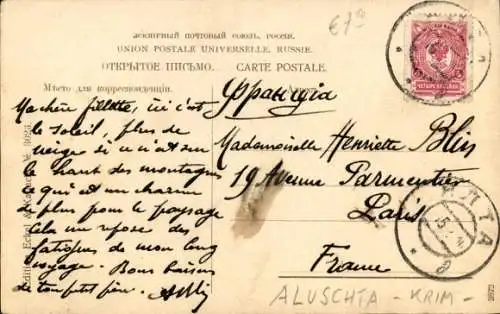 ВСЕМІРНЫЙ ПОЧТОВЫЙ СОЮЗЪ. РОССІЯ.
UNION POSTALE UNIVERSELLE. RUSSIE.
ОТКРЫТОЕ ПИСЬМО. CARTE POSTALE.
Мѣсто для корреспонденціи.
Франція
Mademoiselle Henriette Blin
19 Avenue Parmentier
Paris
France
Ma chère fillette, ici c'est
le soleil, plus de
neige si ce n'est sur
le haut des montagnes
ce qui est un charme
de plus pour le paysage
Cela me repose des
fatigues de mon long
voyage. Bons baisers
de ton petit père.
ЯЛТА
ALUSCHTA - KRIM -